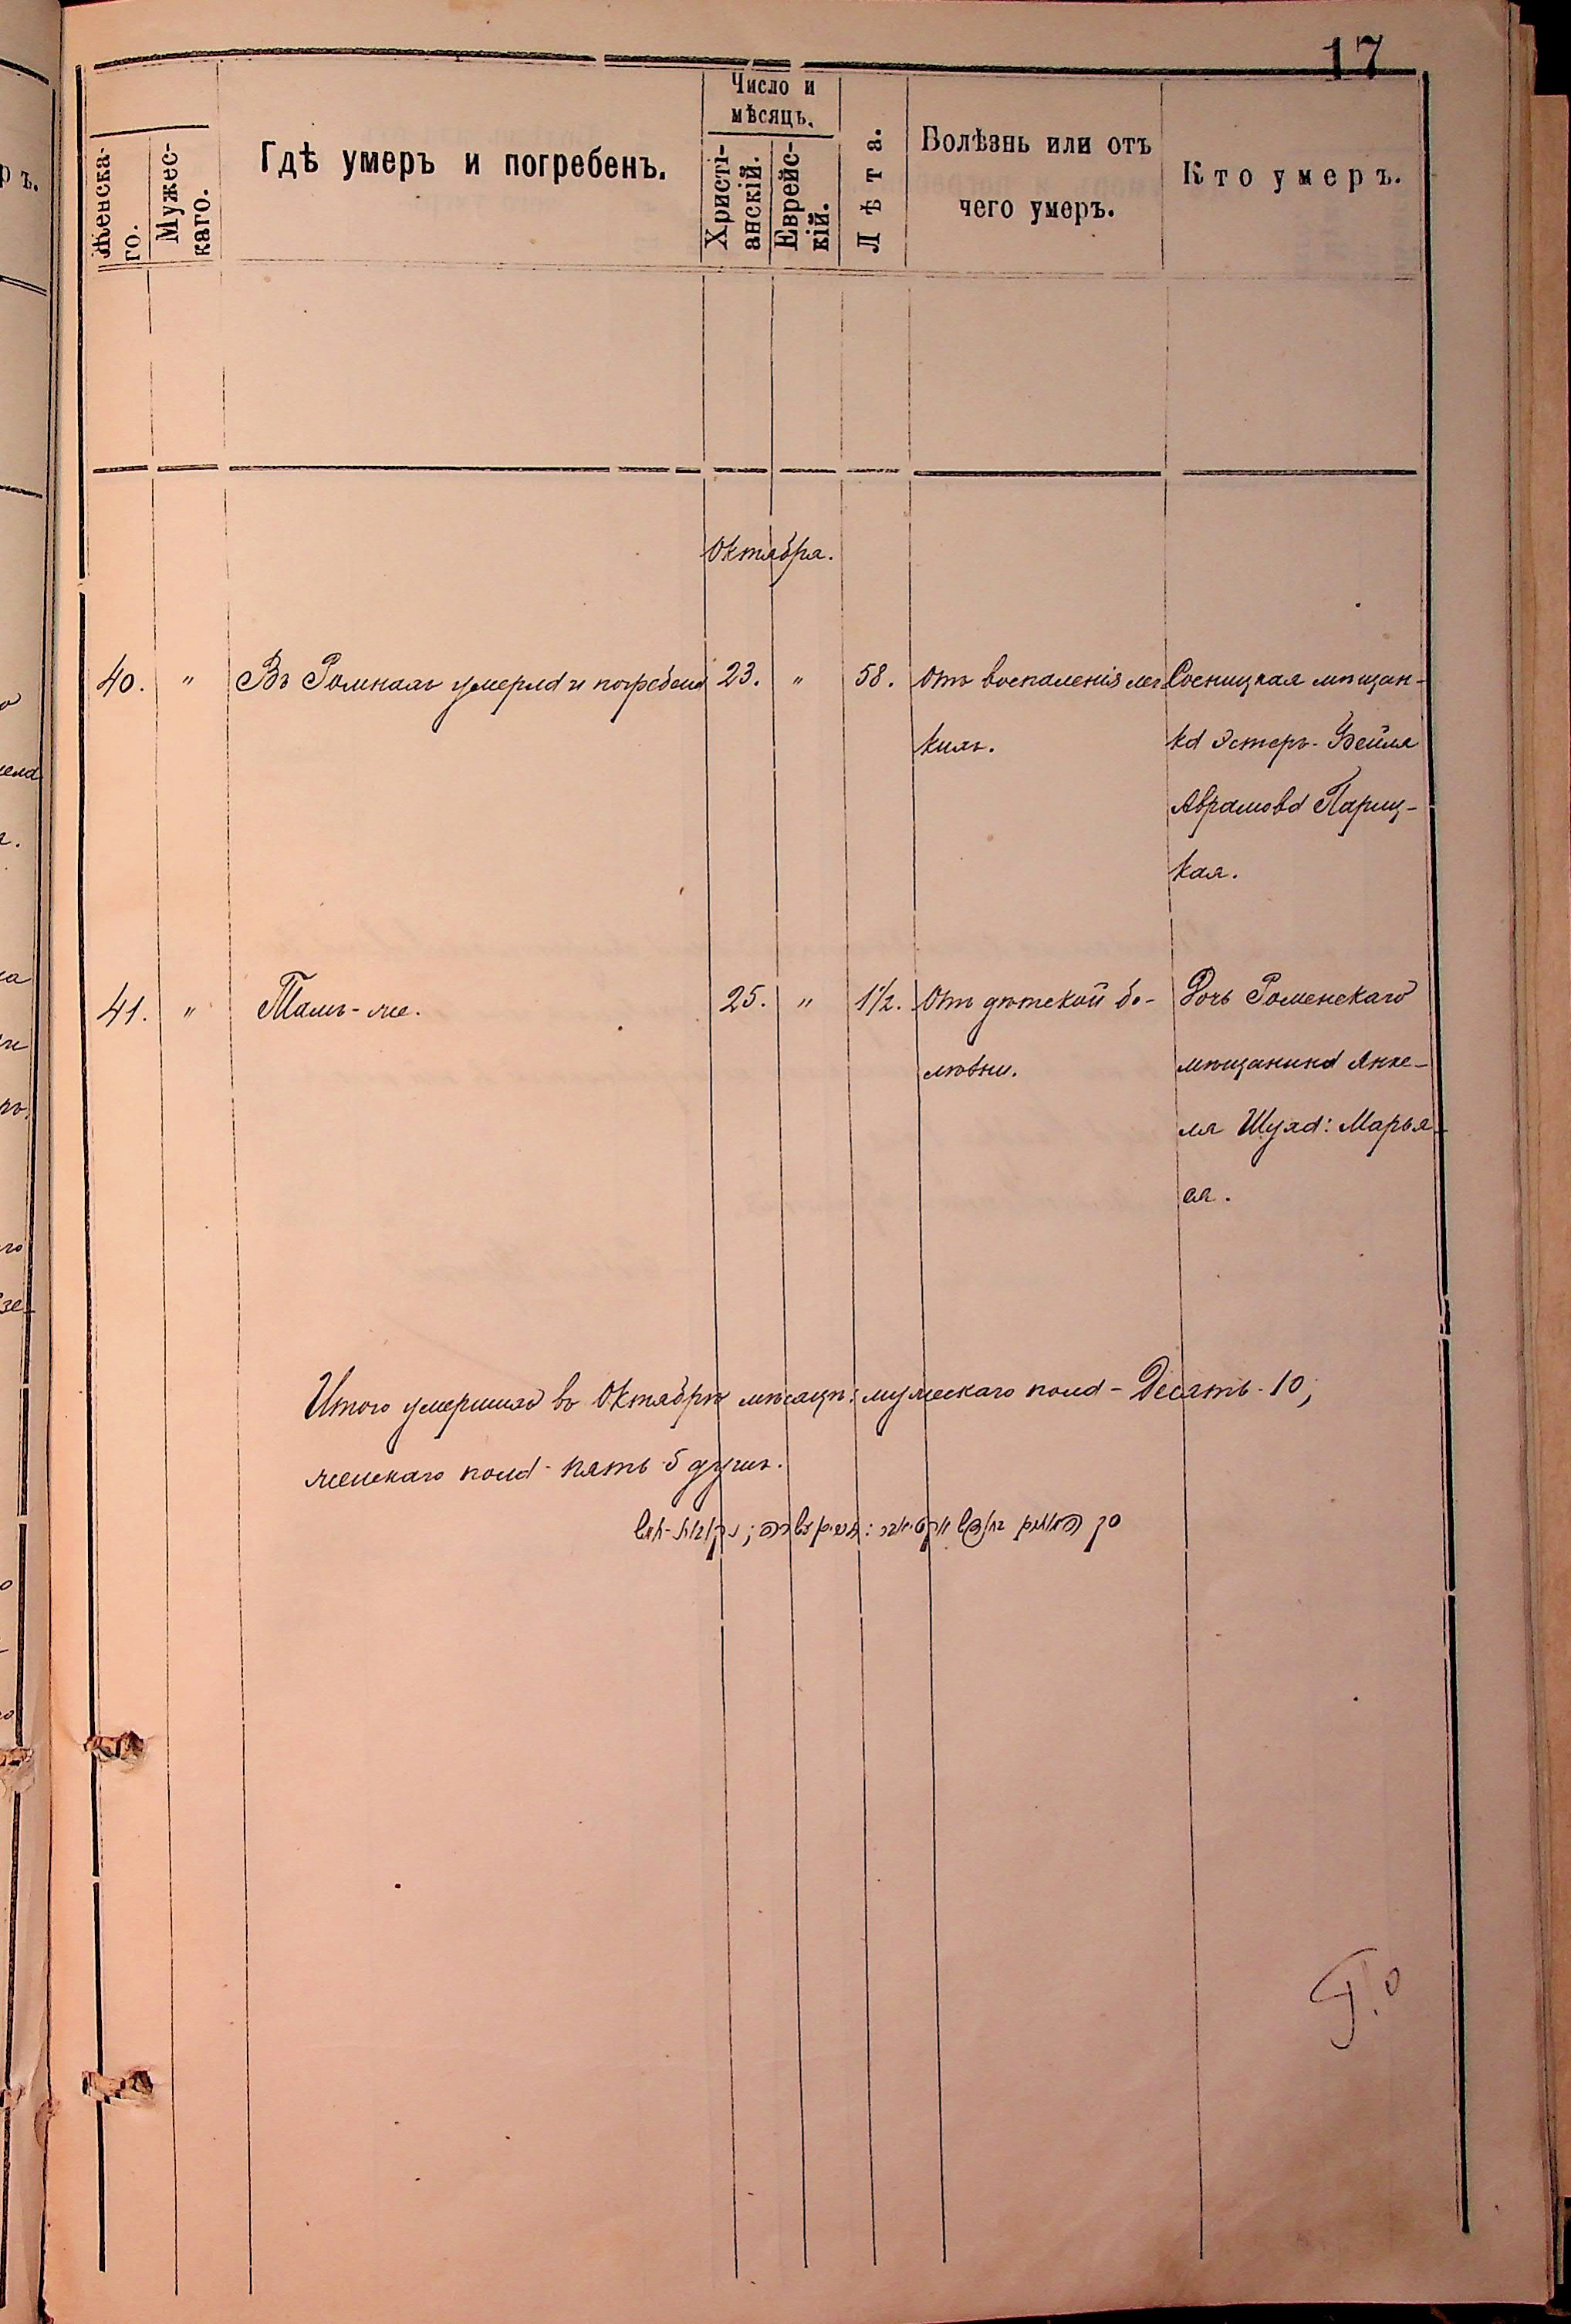 17
Женска-
го.
Мужес-
каго.
Гдѣ умеръ и погребенъ.
Число и
мѣсяцъ.
Христі-
анскій.
Еврейс-
кій.
Лѣта.
Болѣзнь или отъ
чего умеръ.
Кто умеръ.
Октября.
40. " Въ Ромнахъ умерла и погребена 23. " 58. отъ воспаленія лег- Сосницкая мѣщан-
кихъ. ка Эстеръ-Бейля
Абрамова Париц-
кая.
41. " Тамъ-же. 25. " 1½. Отъ дѣтской бо- Дочь Роменскаго
лѣзни. мѣщанина Янке-
ля Шуха: Марья-
ся.
Итого умершихъ въ Октябрѣ мѣсяцѣ: мужескаго пола - Десять - 10;
женскаго пола - пять 5 душъ.